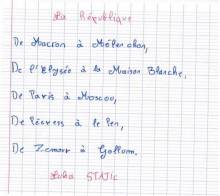 La République
De Macron à Mélenchon,
De l'Elysée à la Maison Blanche,
De Paris à Moscou,
De Pécresse à le Pen,
De Zemour à Gollum.
Luka STATIC